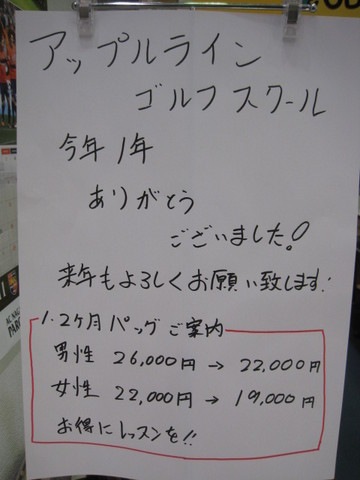 アップルライン
ゴルフスクール
今年1年
ありがとう
ございました!
来年もよろしくお願い致します!
1.2ヶ月パックご案内
男性 26,000円 → 22,000円
女性 22,000円 → 19,000円
お得にレッスンを!!